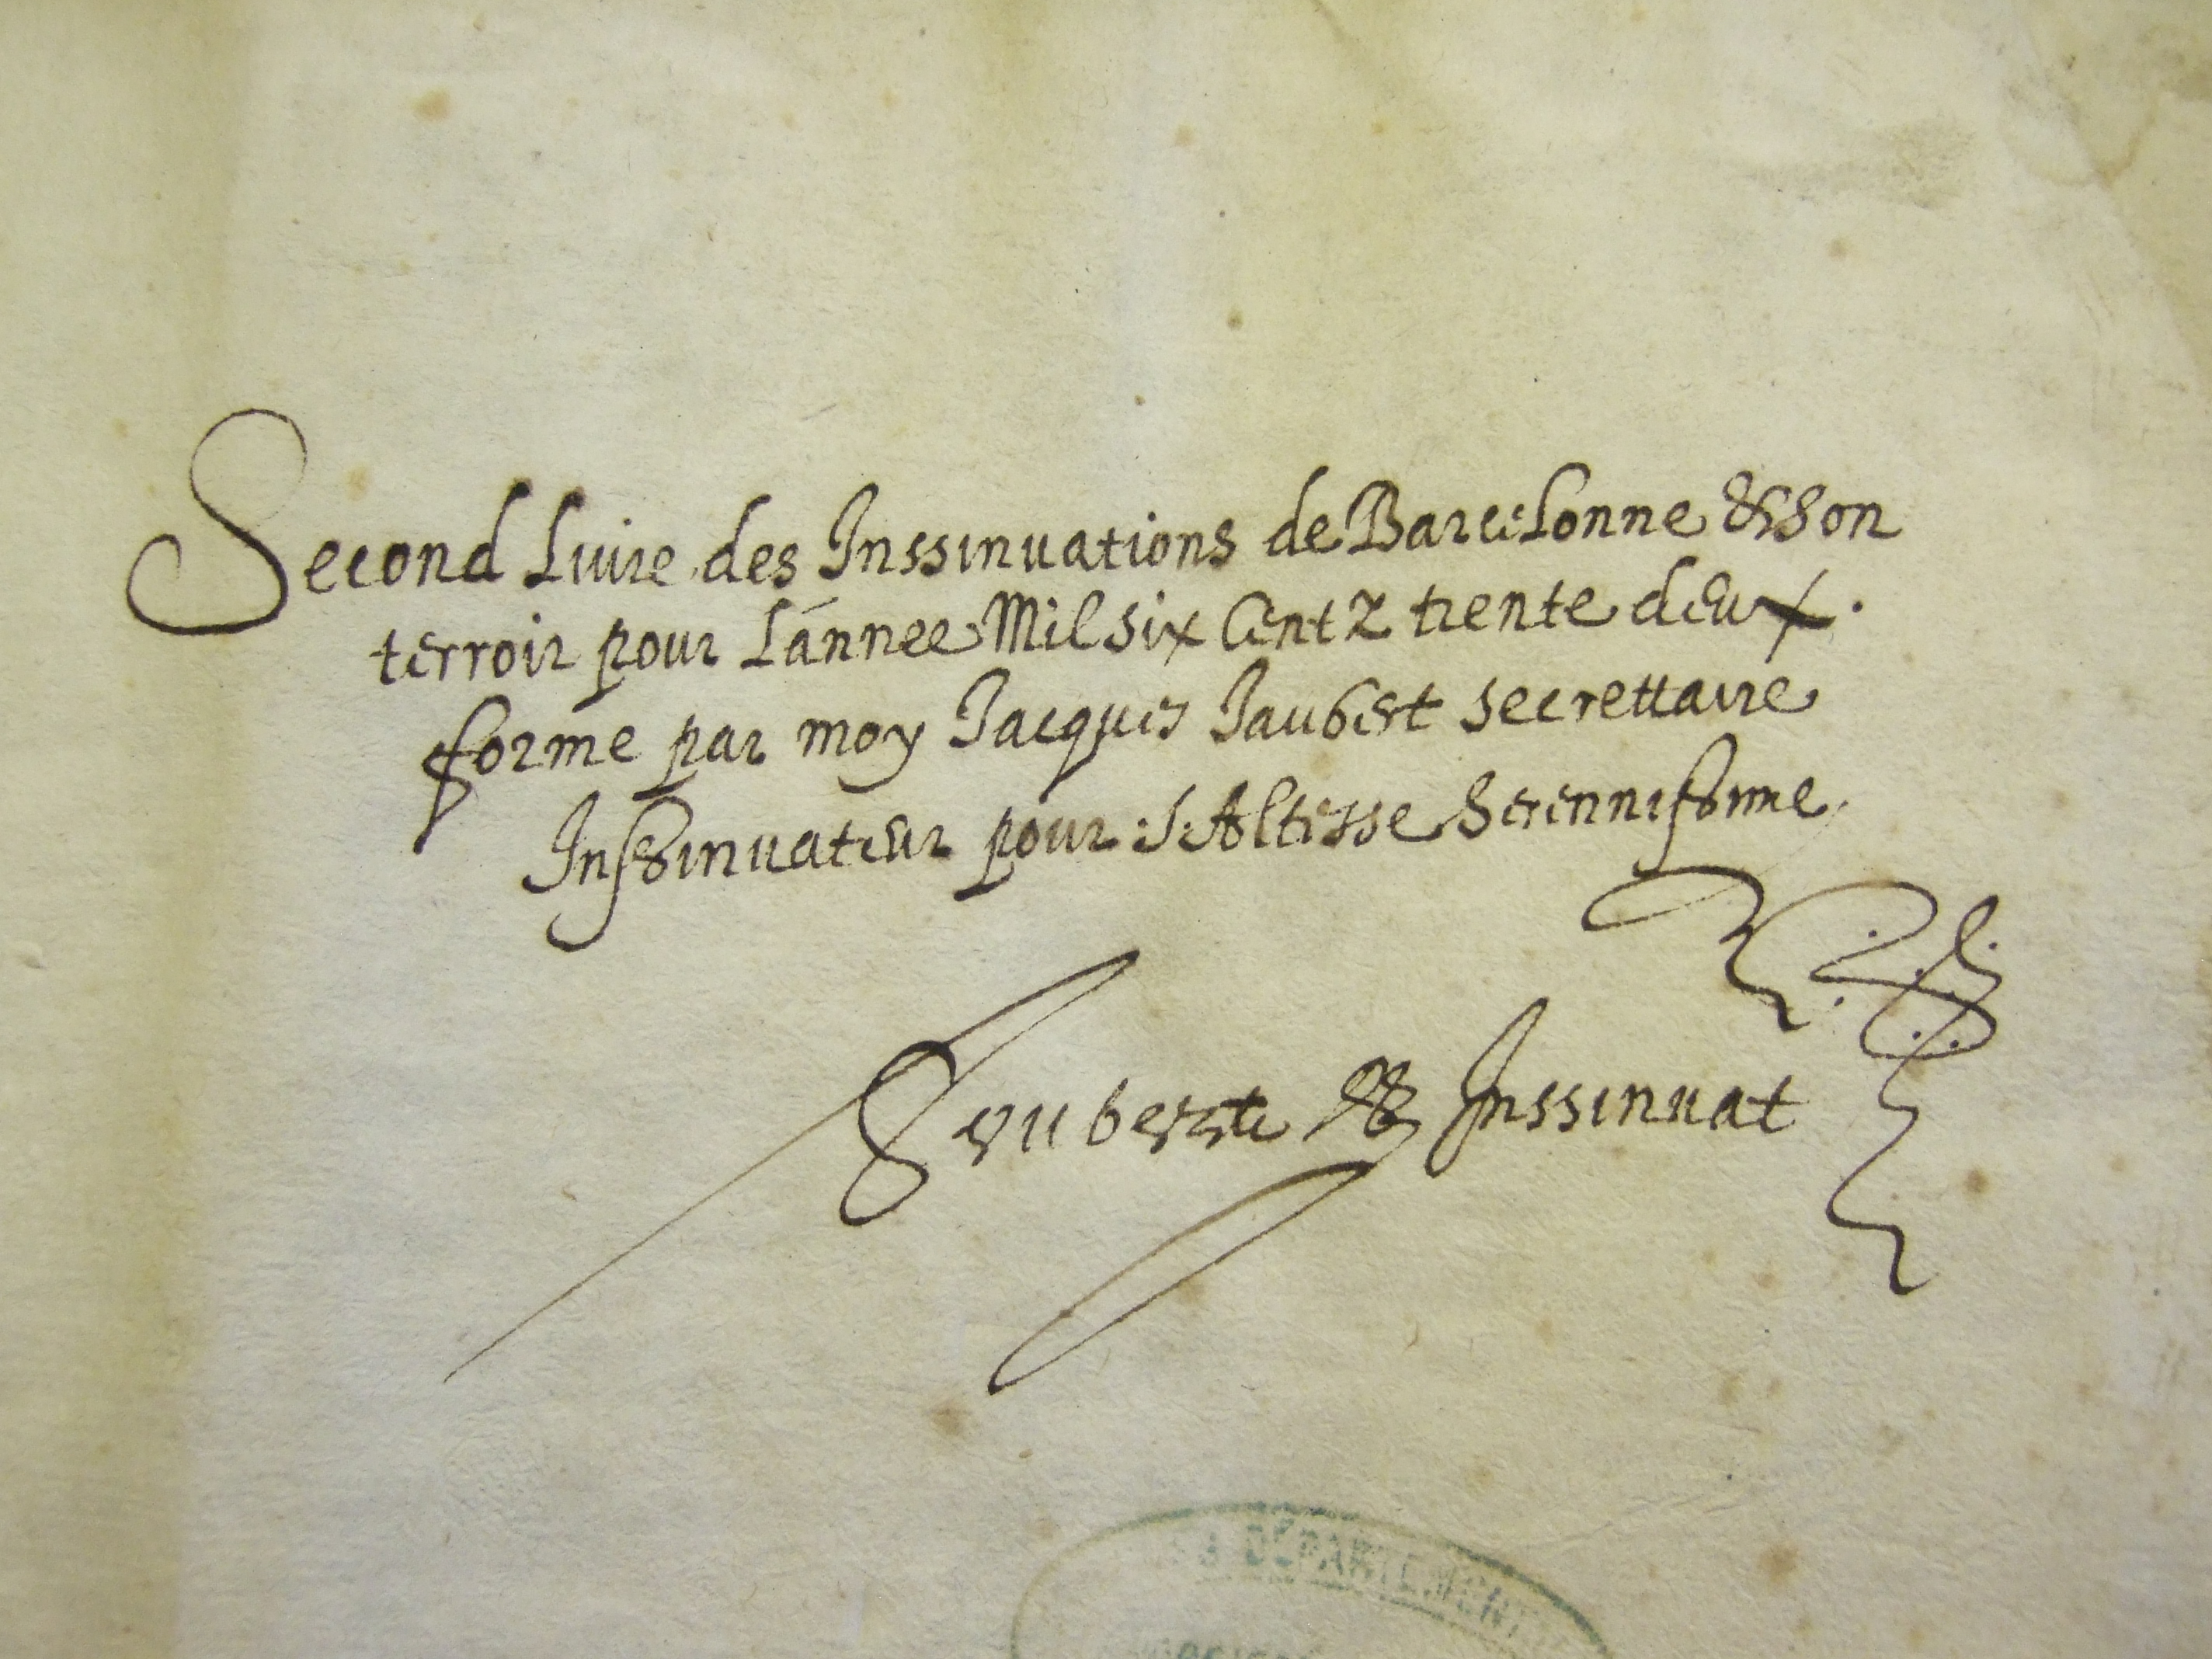 Second Livre des Inssinuations de Barcelonne & son
terroir pour L'annee Mil six Centz trente deux.
forme par moy Jacques Jaubert secrettaire
Inssinuateur pour S. Altesse Serennissime
Jauberte & Inssinuat
DÉPARTEMEN